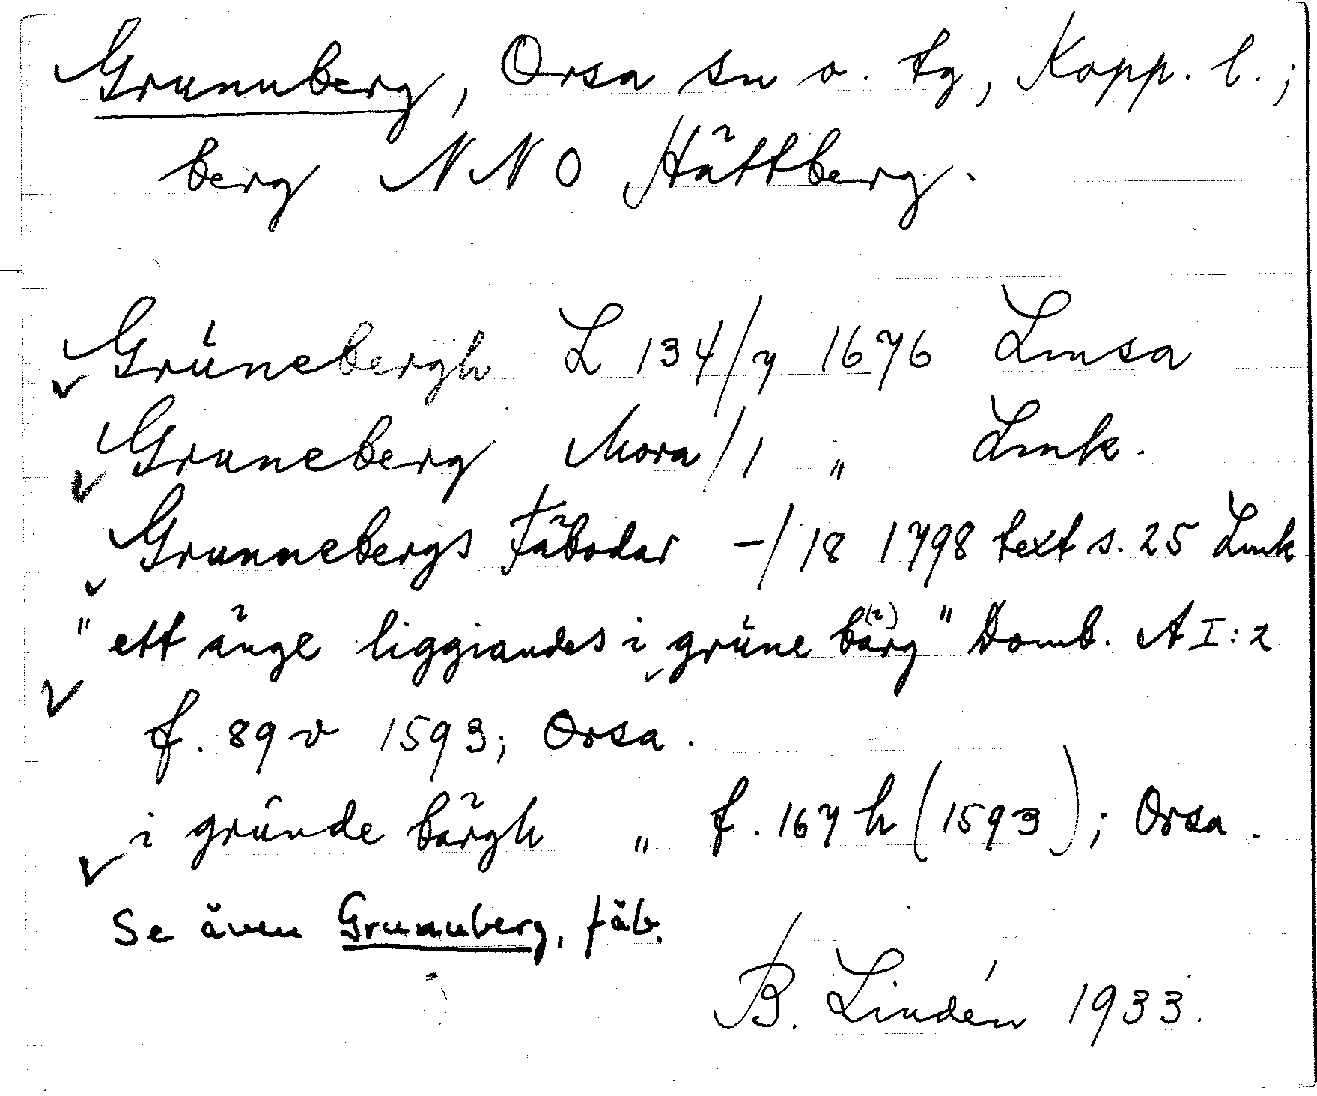 Grunnberg, Orsa sn o. tg, Kopp. l.;
berg NNO Hättberg.
Grünebergh L 134/7 1676 Lmsa
Gruneberg Mora/1 „ Lmk.
Grunnebergs Fäbodar -/18 1798 text s. 25 Lmk
"ett änge liggiandes i grüne bärg" Domb. A I:2
f. 89 v 1593; Orsa.
i gründe bärgh „ f. 167 h (1593); Orsa.
Se även Grunnberg, fäb.
B. Lindén 1933.